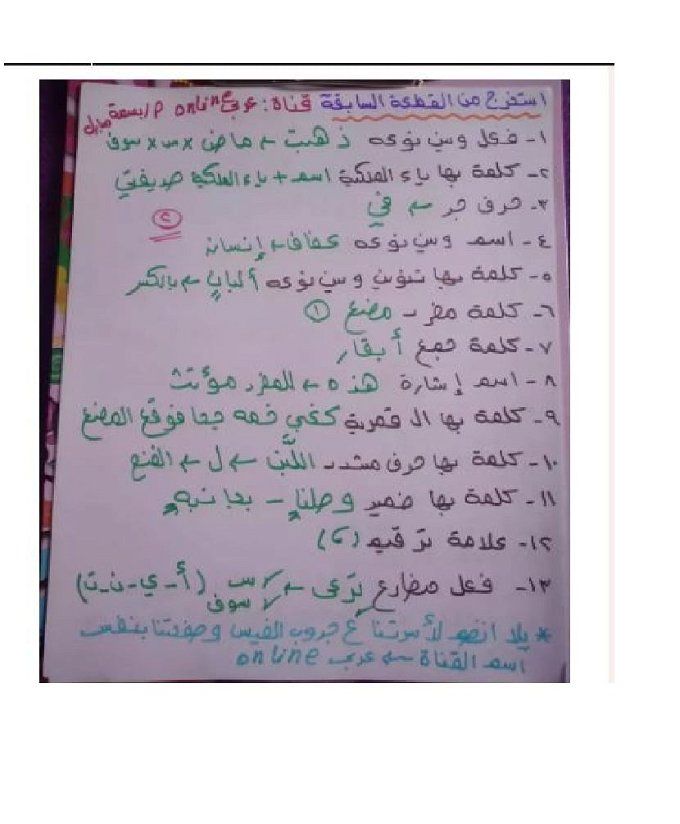 استخرج من القطعة السابقة قناة: عربي online م/بسمة
١- فعل وبين نوعه ذهبت ← ماض × س × سوف
٢- كلمة بها ياء الملكية اسم + ياء الملكية صديقتي
٣- حرف جر ← في
٢
٤- اسم وبين نوعه عفاف ← إنسان
٥- كلمة بها تنوين وبين نوعه ألبانٍ ← بالكسر
٦- كلمة مفرد مصنع ١
٧- كلمة جمع أبقار
٨- اسم إشارة هذه ← المفرد مؤنث
٩- كلمة بها ال قمرية المصنع
١٠- كلمة بها حرف مشدد اللَّبن ← ل ← الفتح
١١- كلمة بها ضمير وصلنا - بجانبه
١٢- علامة ترقيم (،)
١٣- فعل مضارع نرعى ← س سوف (أ - ي - ن - ت)
* يلا انضم لأسرتنا ع جروب الفيس وصفحتنا بنفس
اسم القناة ← عربي online